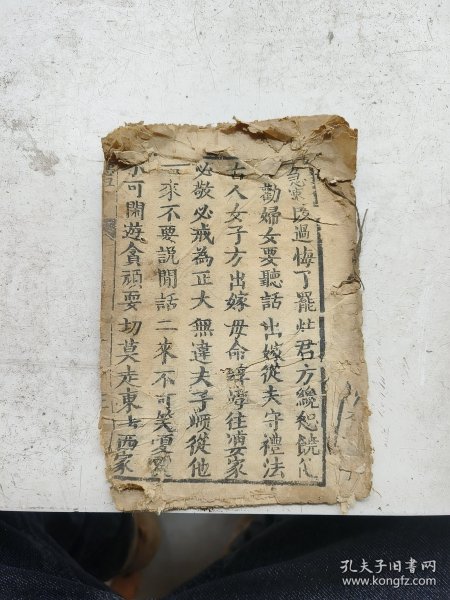 急來改過悔了罷 灶君方纔恕饒他
勸婦女要聽話 出嫁從夫守禮法
古人女子方出嫁 母命諄諄往夫家
必敬必戒為正大 無違夫子順從他
一來不要説閒話 二來不可笑
不可閑遊貪頑耍 切莫走東去西家
孔夫子旧书网
www.kongfz.com